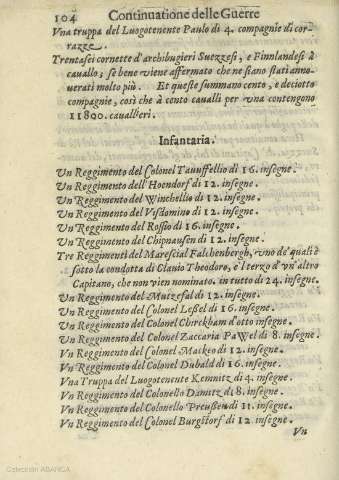 104 Continuatione delle Guerre
Vna truppa del Luogotenente Paulo di 4. compagnie di cor-
razze.
Trentasei cornette d'archibugieri Suezzesi, e Finnlandesi à
cauallo; se bene viene affermato che ne siano stati anno-
uerati molto più. Et queste summano cento, e deciotto
compagnie, così che à cento caualli per vna contengono
11800. cauallieri.
Infantaria.
Vn Reggimento del Colonel Tauuffellio di 16. insegne.
Vn Reggimento dell'Hoendorf di 12. insegne.
Vn Reggimento del Winchellio di 12. insegne.
Vn Reggimento del Visdomino di 12. insegne.
Vn Reggimento del Rossio di 16. insegne.
Vn Reggimento del Chipnausen di 12. insegne.
Tre Reggimenti del Marescial Falchenbergh, vno de' quali è
sotto la condotta di Clauio Theodoro, e'l terzo d'vn'altro
Capitano, che non vien nominato. in tutto di 24. insegne.
Vn Reggimento del Mutzefal di 12. insegne.
Vn Reggimento del Colonel Lessel di 16. insegne.
Vn Reggimento del Colonel Chirckham d'otto insegne.
Vn Reggimento del Colonel Zaccaria Pawel di 8. insegne.
Vn Reggimento del Colonel Maskeo di 12. insegne.
Vn Reggimento del Colonel Dubald di 16. insegne.
Vna Truppa del Luogotenente Kemnitz di 4. insegne.
Vn Reggimento del Colonello Damitz di 8. insegne.
Vn Reggimento del Colonello Preussen di 11. insegne.
Vn Reggimento del Colonel Burgstorf di 12. insegne.
Vn
Colección ABANCA